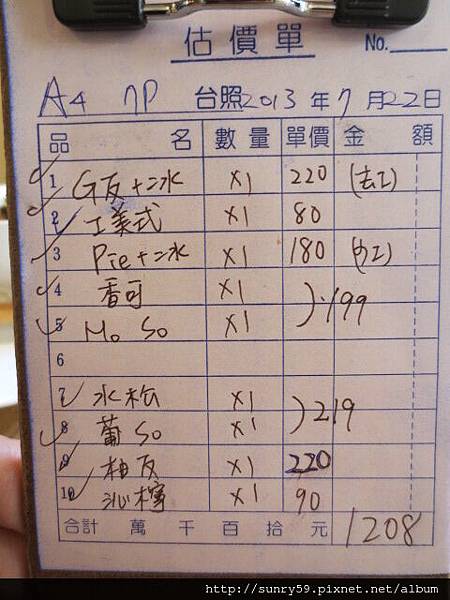 估價單
No.
A4 7P 台照2013年7月22日
品名 數量 單價 金額
1 G友+二冰 X1 220 (去I)
2 I美式 X1 80
3 Pie+二冰 X1 180 (少I)
4 香可 X1
5 Mo So X1 )199
6
7 水松 X1
8 葡So X1 )219
9 柚友 X1 220
10 沁檸 X1 90
合計 萬 千 百 拾 元 1208
http://sunry59.pixnet.net/album